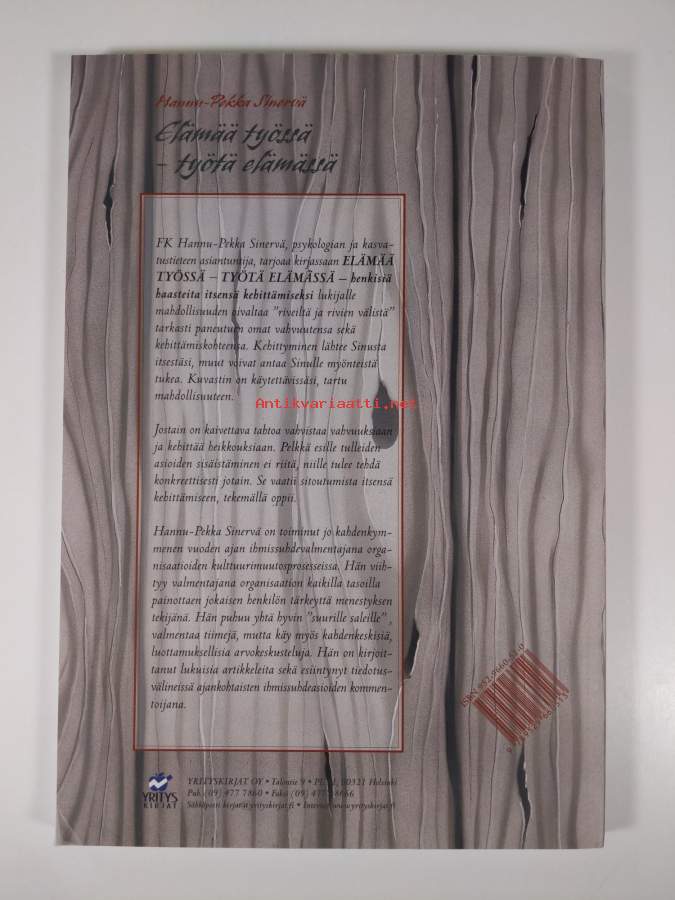 Hannu-Pekka Sinervä
Elämää työssä
– työtä elämässä
FK Hannu-Pekka Sinervä, psykologian ja kasva-
tustieteen asiantuntija, tarjoaa kirjassaan ELÄMÄÄ
TYÖSSÄ – TYÖTÄ ELÄMÄSSÄ – henkisiä
haasteita itsensä kehittämiseksi lukijalle
mahdollisuuden oivaltaa "riveiltä ja rivien välistä"
tarkasti paneutuen omat vahvuutensa sekä
kehittämiskohteensa. Kehittyminen lähtee Sinusta
itsestäsi, muut voivat antaa Sinulle myönteistä
tukea. Kuvastin on käytettävissäsi, tartu
mahdollisuuteen.
Antikvariaatti.net
Jostain on kaivettava tahtoa vahvistaa vahvuuksiaan
ja kehittää heikkouksiaan. Pelkkä esille tulleiden
asioiden sisäistäminen ei riitä, niille tulee tehdä
konkreettisesti jotain. Se vaatii sitoutumista itsensä
kehittämiseen, tekemällä oppii.
Hannu-Pekka Sinervä on toiminut jo kahdenkym-
menen vuoden ajan ihmissuhdevalmentajana orga-
nisaatioiden kulttuurimuutosprosesseissa. Hän viih-
tyy valmentajana organisaation kaikilla tasoilla
painottaen jokaisen henkilön tärkeyttä menestyksen
tekijänä. Hän puhuu yhtä hyvin "suurille saleille",
valmentaa tiimejä, mutta käy myös kahdenkeskisiä,
luottamuksellisia arvokeskusteluja. Hän on kirjoit-
tanut lukuisia artikkeleita sekä esiintynyt tiedotus-
välineissä ajankohtaisten ihmissuhdeasioiden kommen-
toijana.
YRITYS
KIRJAT
YRITYSKIRJAT OY • Talontie 9 • 00321 Helsinki
Puh. (09) 477 7860 • Faksi (09)
Sähköposti kirjat@yrityskirjat.fi • Internet www.yrityskirjat.fi
ISBN 952-9660-51-0